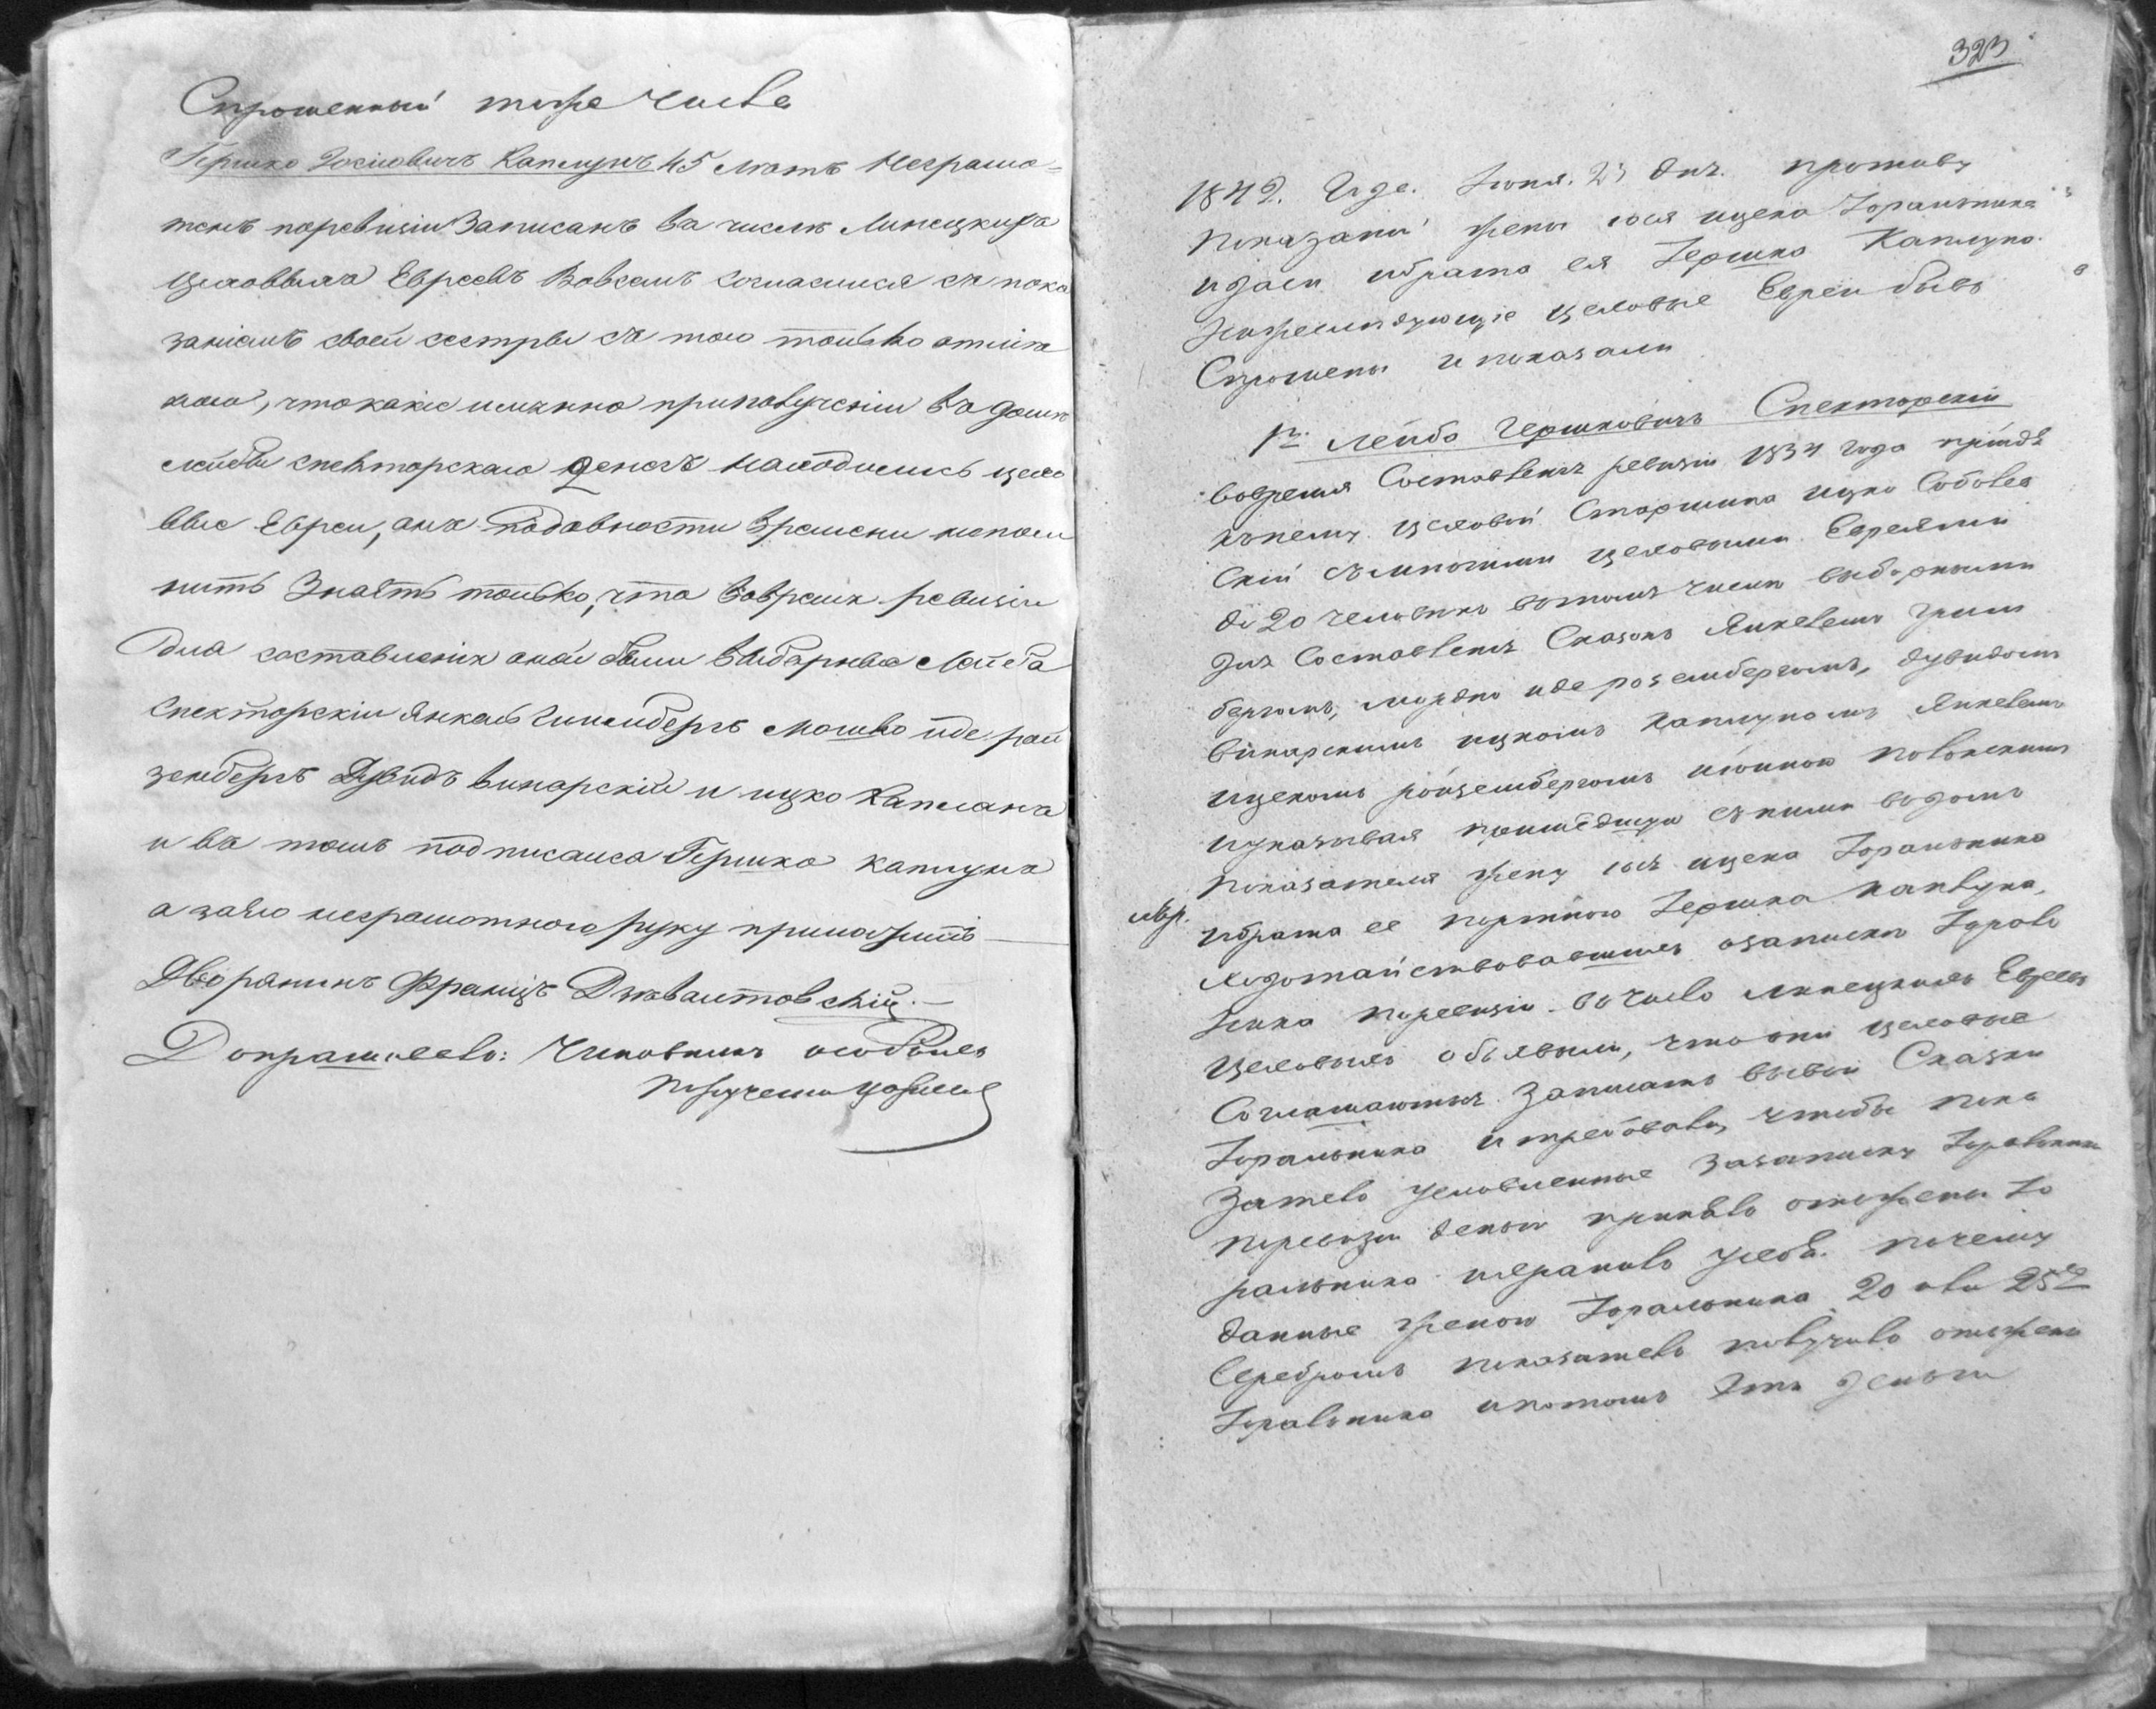 Спрошенный того же числа
Гершко Іосіовичъ Каплунъ 45 лѣтъ неграмо-
тенъ поревизіи Записанъ въ числѣ Линецкихъ
цеховыхъ Евреевъ Вовсемъ согласился съ пока
заніемъ своей сестры съ тою только отмѣ
ною, что какіе именно при получении въ домѣ
Лейбы спекторскаго денегъ находились цехо
вые Евреи, онъ подавности времени непом
нитъ Знаетъ только, что вовремя ревизіи
для составленія оной были выборные Лейба
Спекторскій Янкель Гинсибергъ Мошко иде рай
зенбергъ Дувидъ винарскій и ицко Каплана
и въ томъ подписался Гершко каплунъ
а заего неграмотного руку приложилъ
Дворянинъ Францъ
Допрашивалъ: Чиновникъ особыхъ
порученій
323
1849. Года. Іюня. 23 дня. противу
показаній жены іося ицека Горальника
идаси ибрата ея Гершко Каплуна
нижеслѣдующіе цеховые Евреи бывъ
Спрошены и показали
1й. Лейба Гершковичъ Спекторскій
вовремя Составленія ревизіи 1834 года пріидя
кънему цеховой Старшина ицко Соболев
скій съмногими цеховыми Евреями
до 20 человѣкъ вътомъ числѣ выборными
для Составленія Сказокъ Янкелемъ Гинс
бергомъ, Мошко иде розембергомъ, Дувидомъ
винарскимъ ицкомъ Каплуномъ Янкелемъ
ицекомъ ройзембергомъ
иуказывая пришедшую съними въдомъ
показателя жену іося ицека Горальника
ибрата ее портного Гершка каплуна,
ходатайствовавшихъ озаписки Гораль
ника поревизіи въ число Линецкихъ Евреевъ
Цеховыхъ объявили, что они цеховые
Соглашаются Записать въсвои Сказки
Горальника итребовали, чтобы пока
затель условленные зазаписку Горальника
поревизіи деньги принялъ отжены Го
ральника ихранилъ усебя. почему
данные женою Горальника 20 или 25 р
Серебромъ показатель получилъ отжены
Горальника ипотомъ Эти деньги